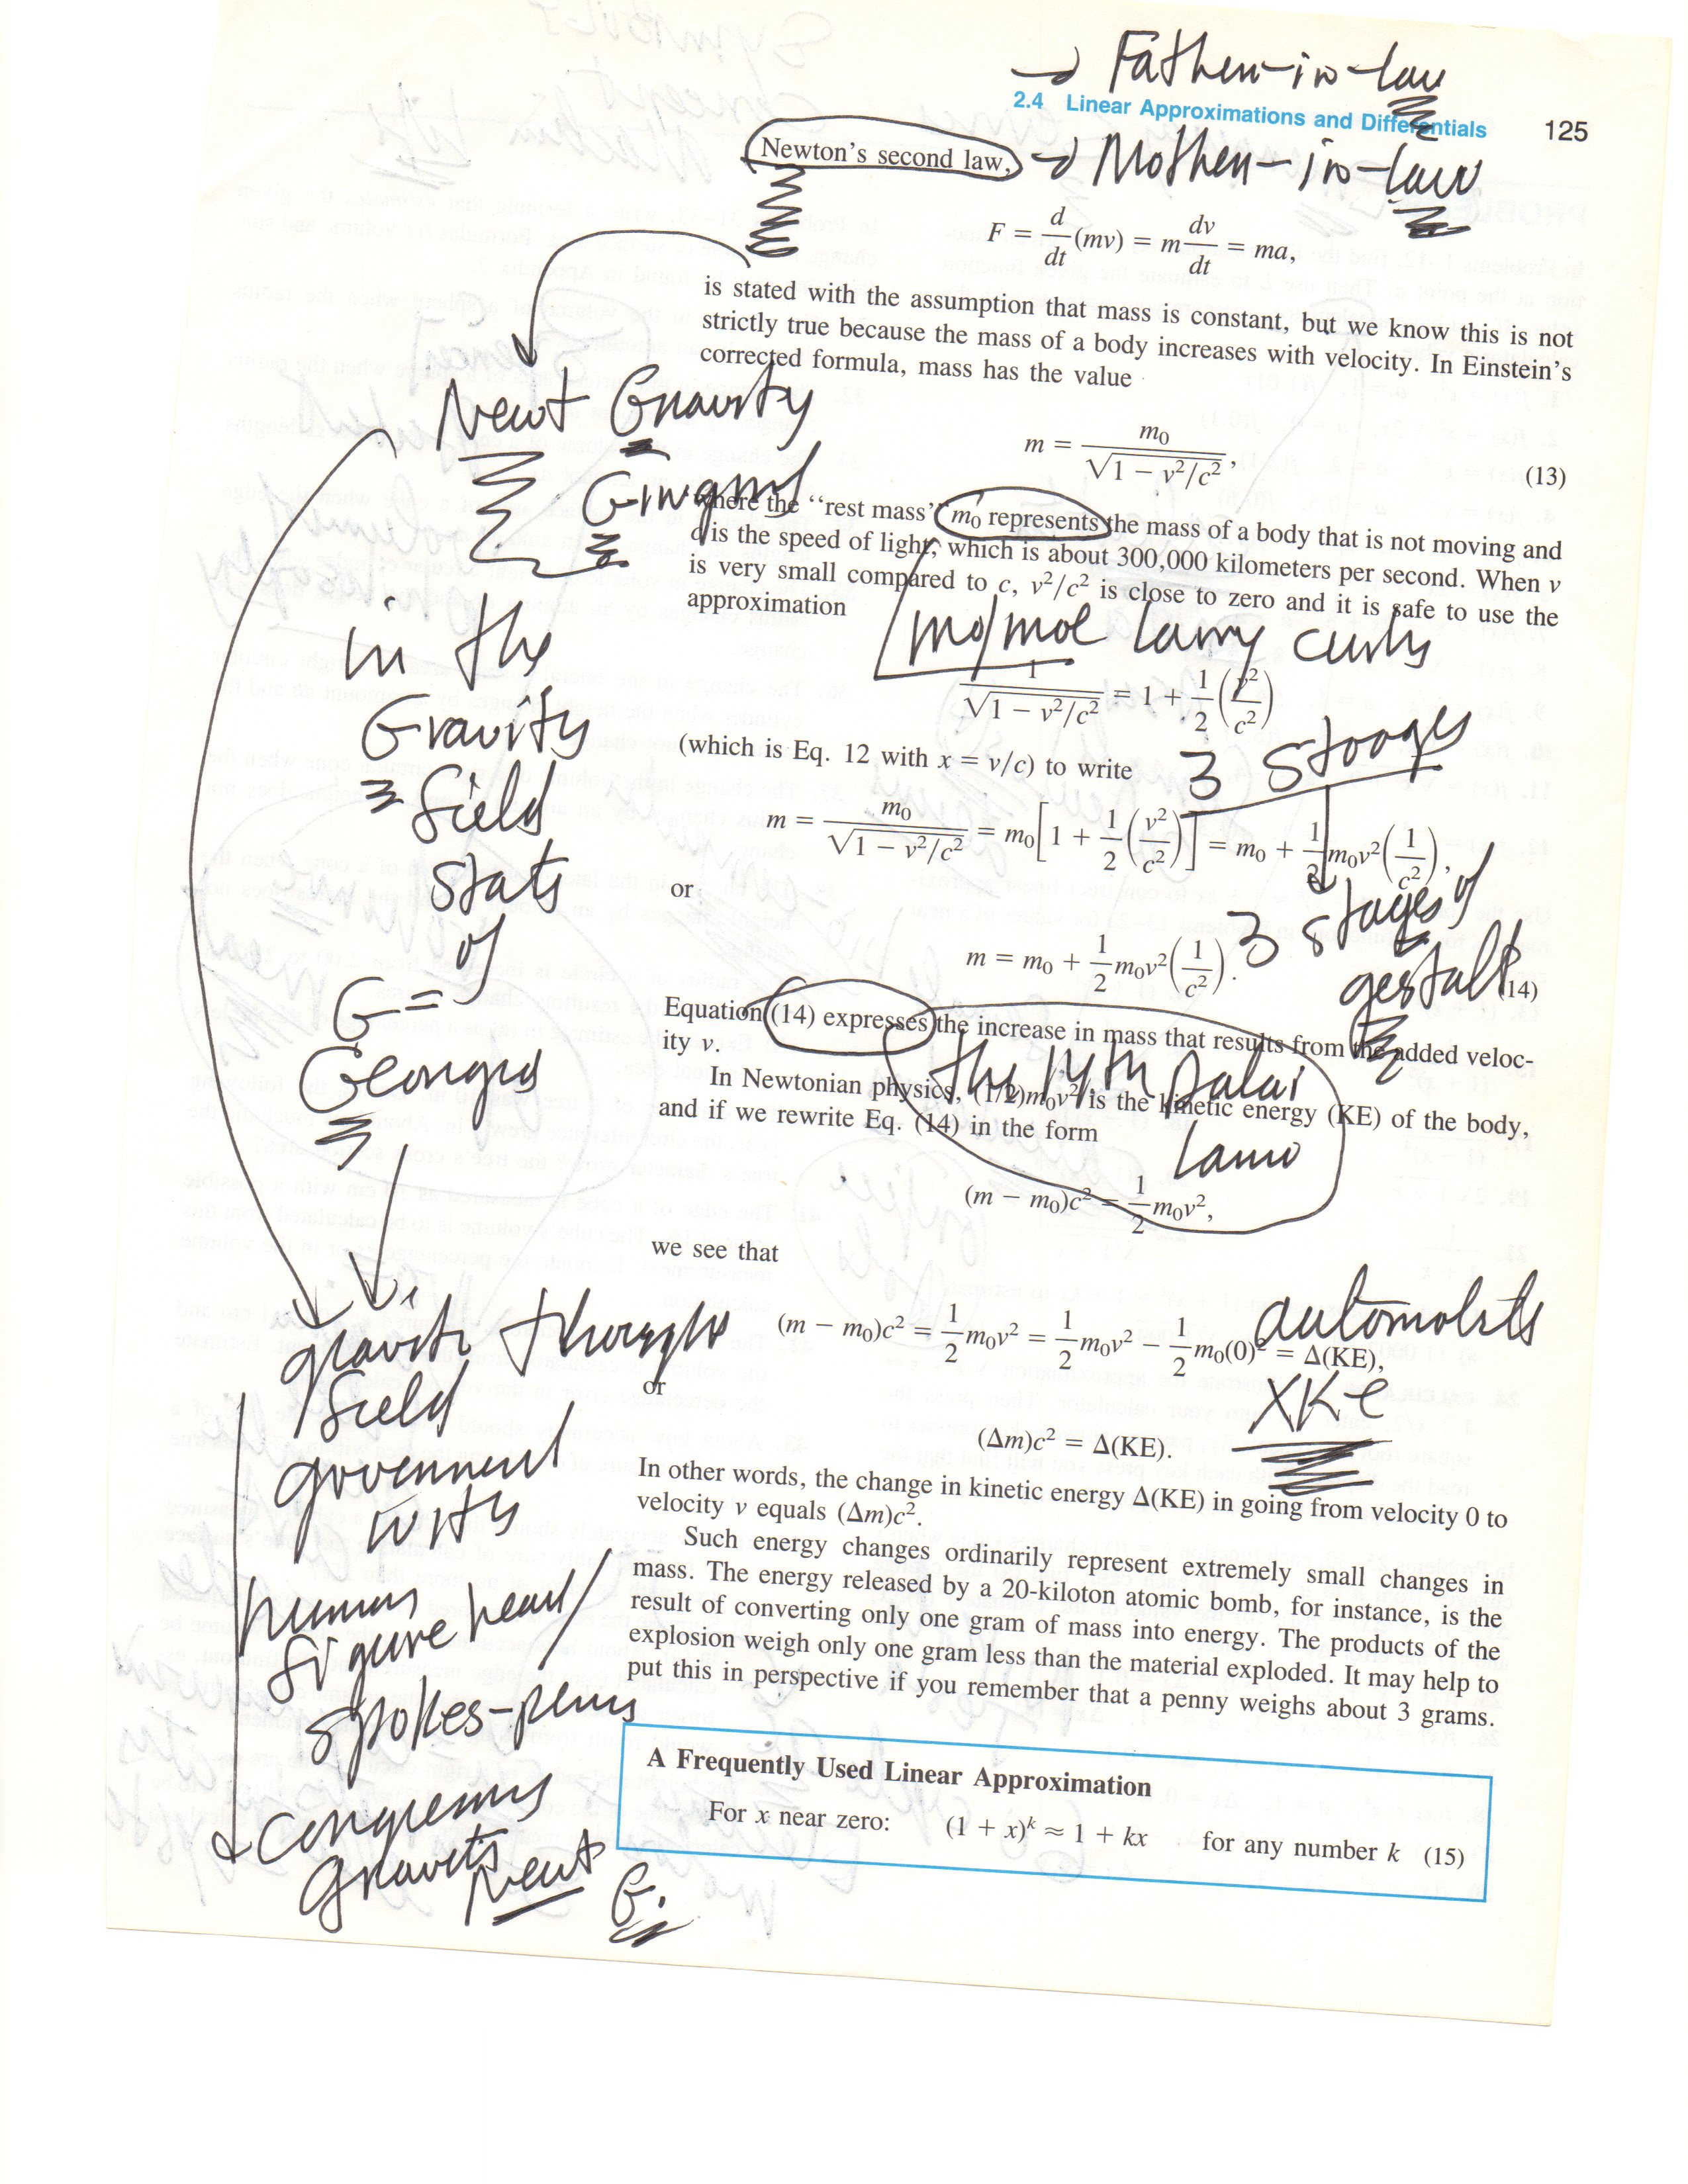 → Father-in-law
2.4 Linear Approximations and Differentials 125
Newton's second law, → Mother-in-law
F = d/dt (mv) = m dv/dt = ma,
is stated with the assumption that mass is constant, but we know this is not
strictly true because the mass of a body increases with velocity. In Einstein's
corrected formula, mass has the value
m = m₀ / √(1 − v²/c²), (13)
where the "rest mass" m₀ represents the mass of a body that is not moving and
c is the speed of light, which is about 300,000 kilometers per second. When v
is very small compared to c, v²/c² is close to zero and it is safe to use the
approximation
mo/moe larry curly
1 / √(1 − v²/c²) = 1 + 1/2 (v²/c²)
(which is Eq. 12 with x = v/c) to write
3 stooges
m = m₀ / √(1 − v²/c²) = m₀[1 + 1/2 (v²/c²)] = m₀ + 1/2 m₀v²(1/c²),
or
3 stages of
gestalt
m = m₀ + 1/2 m₀v²(1/c²). (14)
Equation (14) expresses the increase in mass that results from the added veloc-
ity v.
the 14th Dalai
Lama
In Newtonian physics, (1/2)m₀v² is the kinetic energy (KE) of the body,
and if we rewrite Eq. (14) in the form
(m − m₀)c² = 1/2 m₀v²,
we see that
automobile
(m − m₀)c² = 1/2 m₀v² = 1/2 m₀v² − 1/2 m₀(0)² = Δ(KE),
or
XKE
(Δm)c² = Δ(KE).
In other words, the change in kinetic energy Δ(KE) in going from velocity 0 to
velocity v equals (Δm)c².
Such energy changes ordinarily represent extremely small changes in
mass. The energy released by a 20-kiloton atomic bomb, for instance, is the
result of converting only one gram of mass into energy. The products of the
explosion weigh only one gram less than the material exploded. It may help to
put this in perspective if you remember that a penny weighs about 3 grams.
A Frequently Used Linear Approximation
For x near zero: (1 + x)ᵏ ≈ 1 + kx for any number k (15)
Newt Gravity
Gingrich
in the
Gravity
field
state
of
G =
Georgia
gravity thought
field
government
works
human
figure head/
spokes-person
congressman
gravity
Newt G.